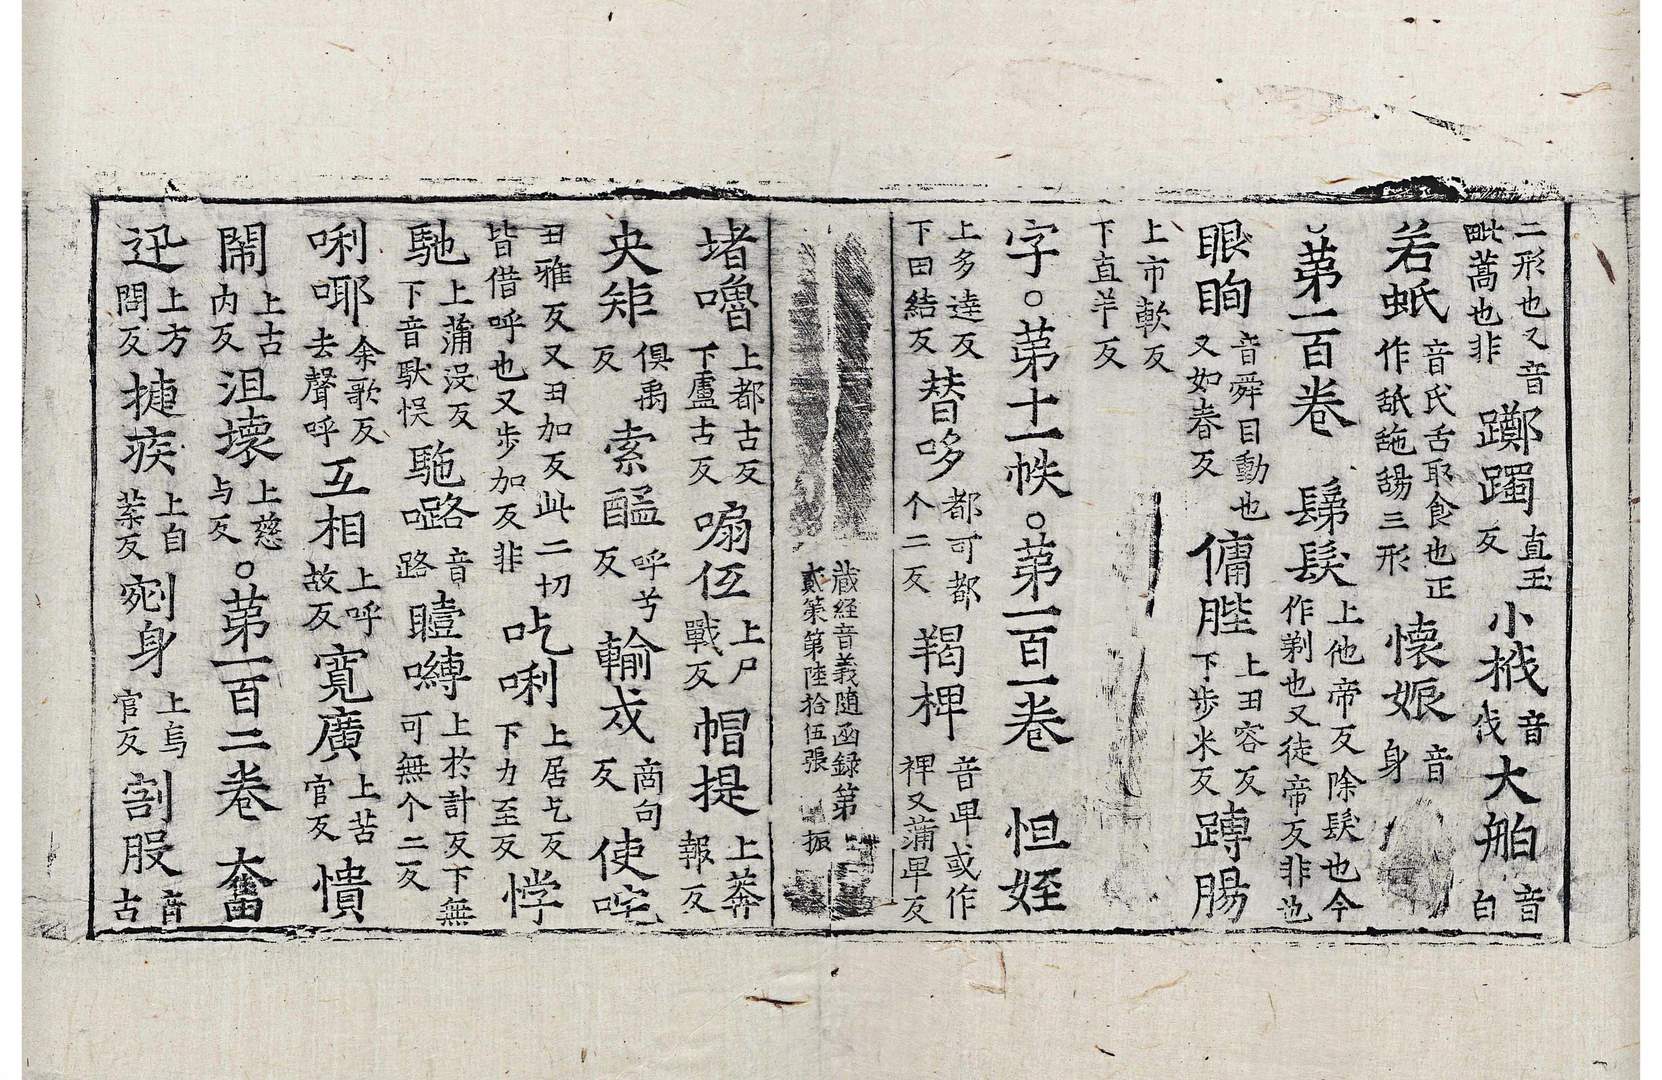 二形也又音毗蒿也非躑躅直玉反小橃音伐大舶音白
若蚔音氏舌取食也正作舐䑛舓三形懷娠音身
第一百卷䯜髮上他帝反除髮也今作剃也又徒帝反非也
眼眴音舜目動也又如春反傭䏶上丑容反下步米反蹲腸
上市軟反下直羊反
字○第十一帙○第一百一卷怛姪
上多達反下田結反替哆都可都个二反羯椑音卑或作裨又蒲卑反
藏經音義隨函録第貳第第陸拾伍張振
堵嚕上都古反下盧古反㗩伍上尸戰反帽提上莽報反
央矩俱禹反索醯呼兮反輸戍商句反使咤
丑雅反又丑加反此二切皆借呼也又步加反非吃唎上居乞反下力至反悙
馳上蒲没反下音馱悮駞㗉音路曀嚩上於計反下無可無个二反
唎㖿余歌反去聲呼互相上呼故反寬廣上苦官反憒
鬧上古内反沮壞上慈与反○第一百二卷奮
迅上方問反㨗疾上自葉反剜身上烏官反割股音古